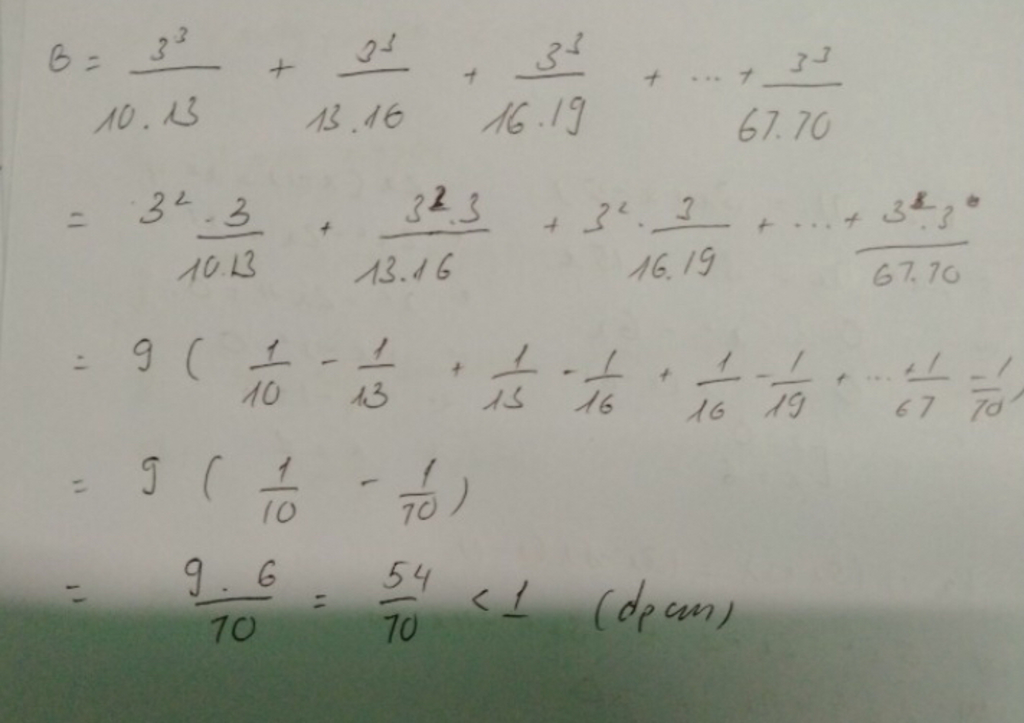 B = 3³/10.13 + 3³/13.16 + 3³/16.19 + ... + 3³/67.70
= 3² . 3/10.13 + 3².3/13.16 + 3² . 3/16.19 + ... + 3².3/67.70
= 9 ( 1/10 - 1/13 + 1/13 - 1/16 + 1/16 - 1/19 + ... + 1/67 - 1/70)
= 9 ( 1/10 - 1/70 )
= 9 . 6/70 = 54/70 < 1 (đpcm)